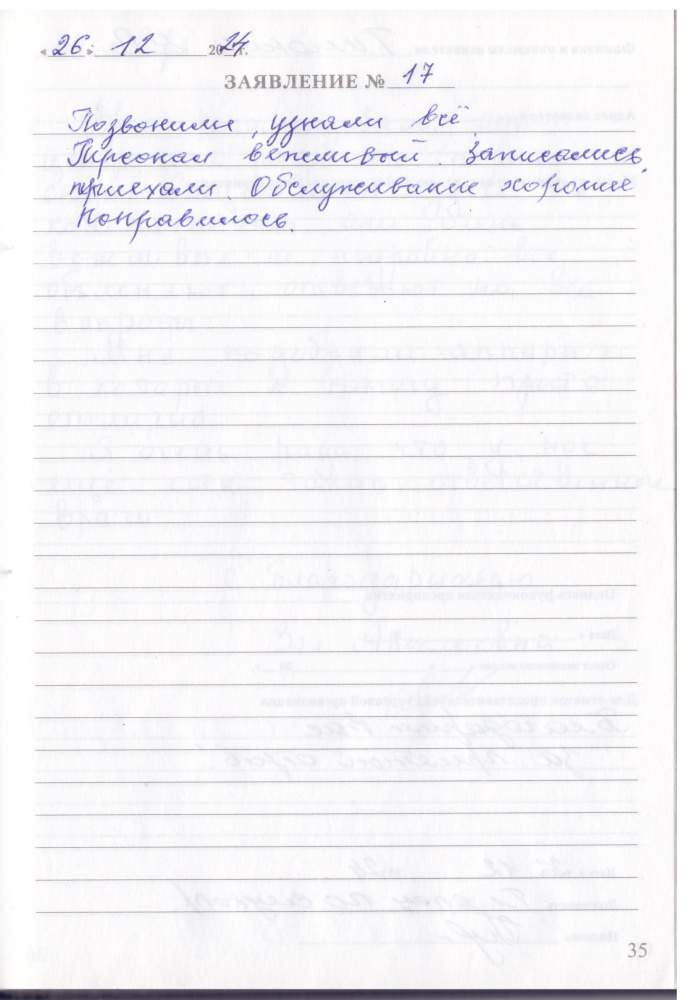 « 26 » 12 2024 г.
ЗАЯВЛЕНИЕ № 17
Позвонили, узнали всё.
Персонал вежливый. Записались,
приехали. Обслуживание хорошее.
Понравилось.
35